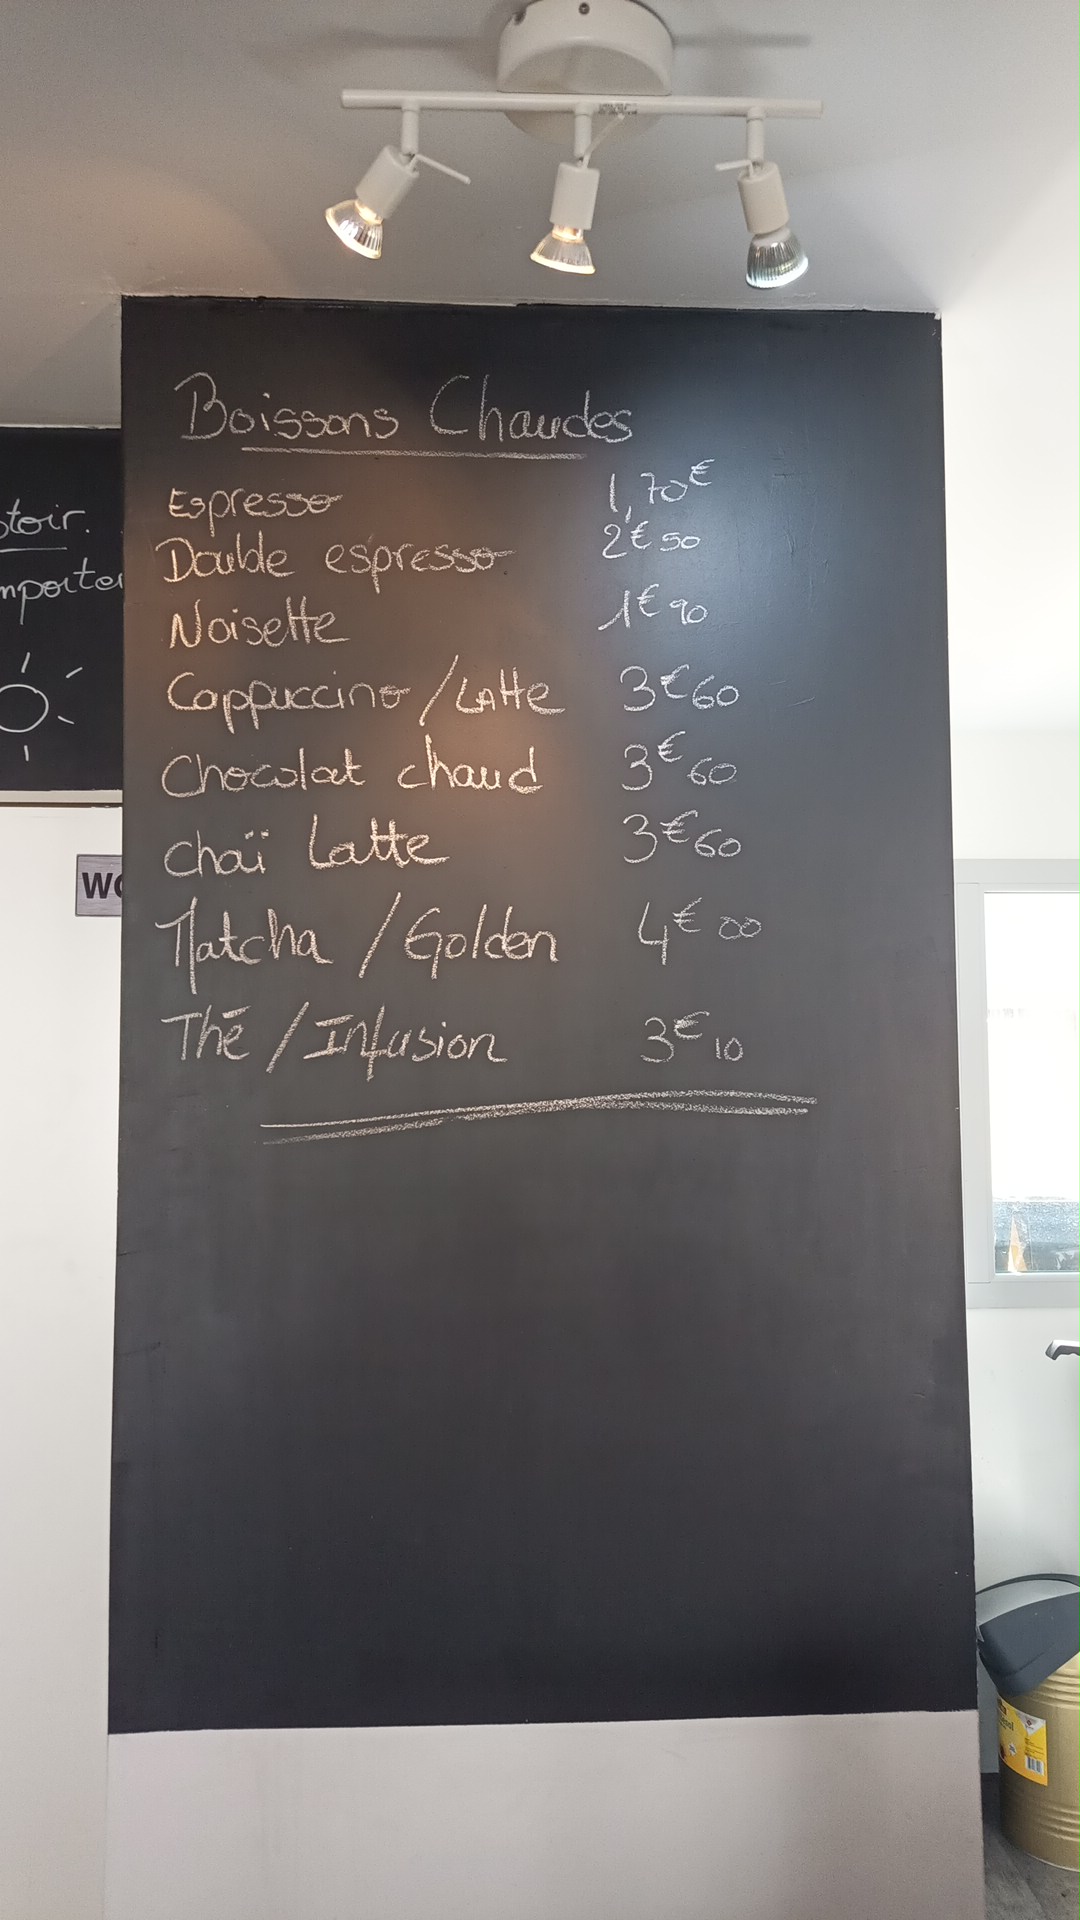 Boissons Chaudes
Espresso 1,70€
Double espresso 2€50
Noisette 1€90
Cappuccino / Latte 3€60
Chocolat chaud 3€60
Chaï Latte 3€60
Matcha / Golden 4€00
Thé / Infusion 3€10
toir.
mporter
WC